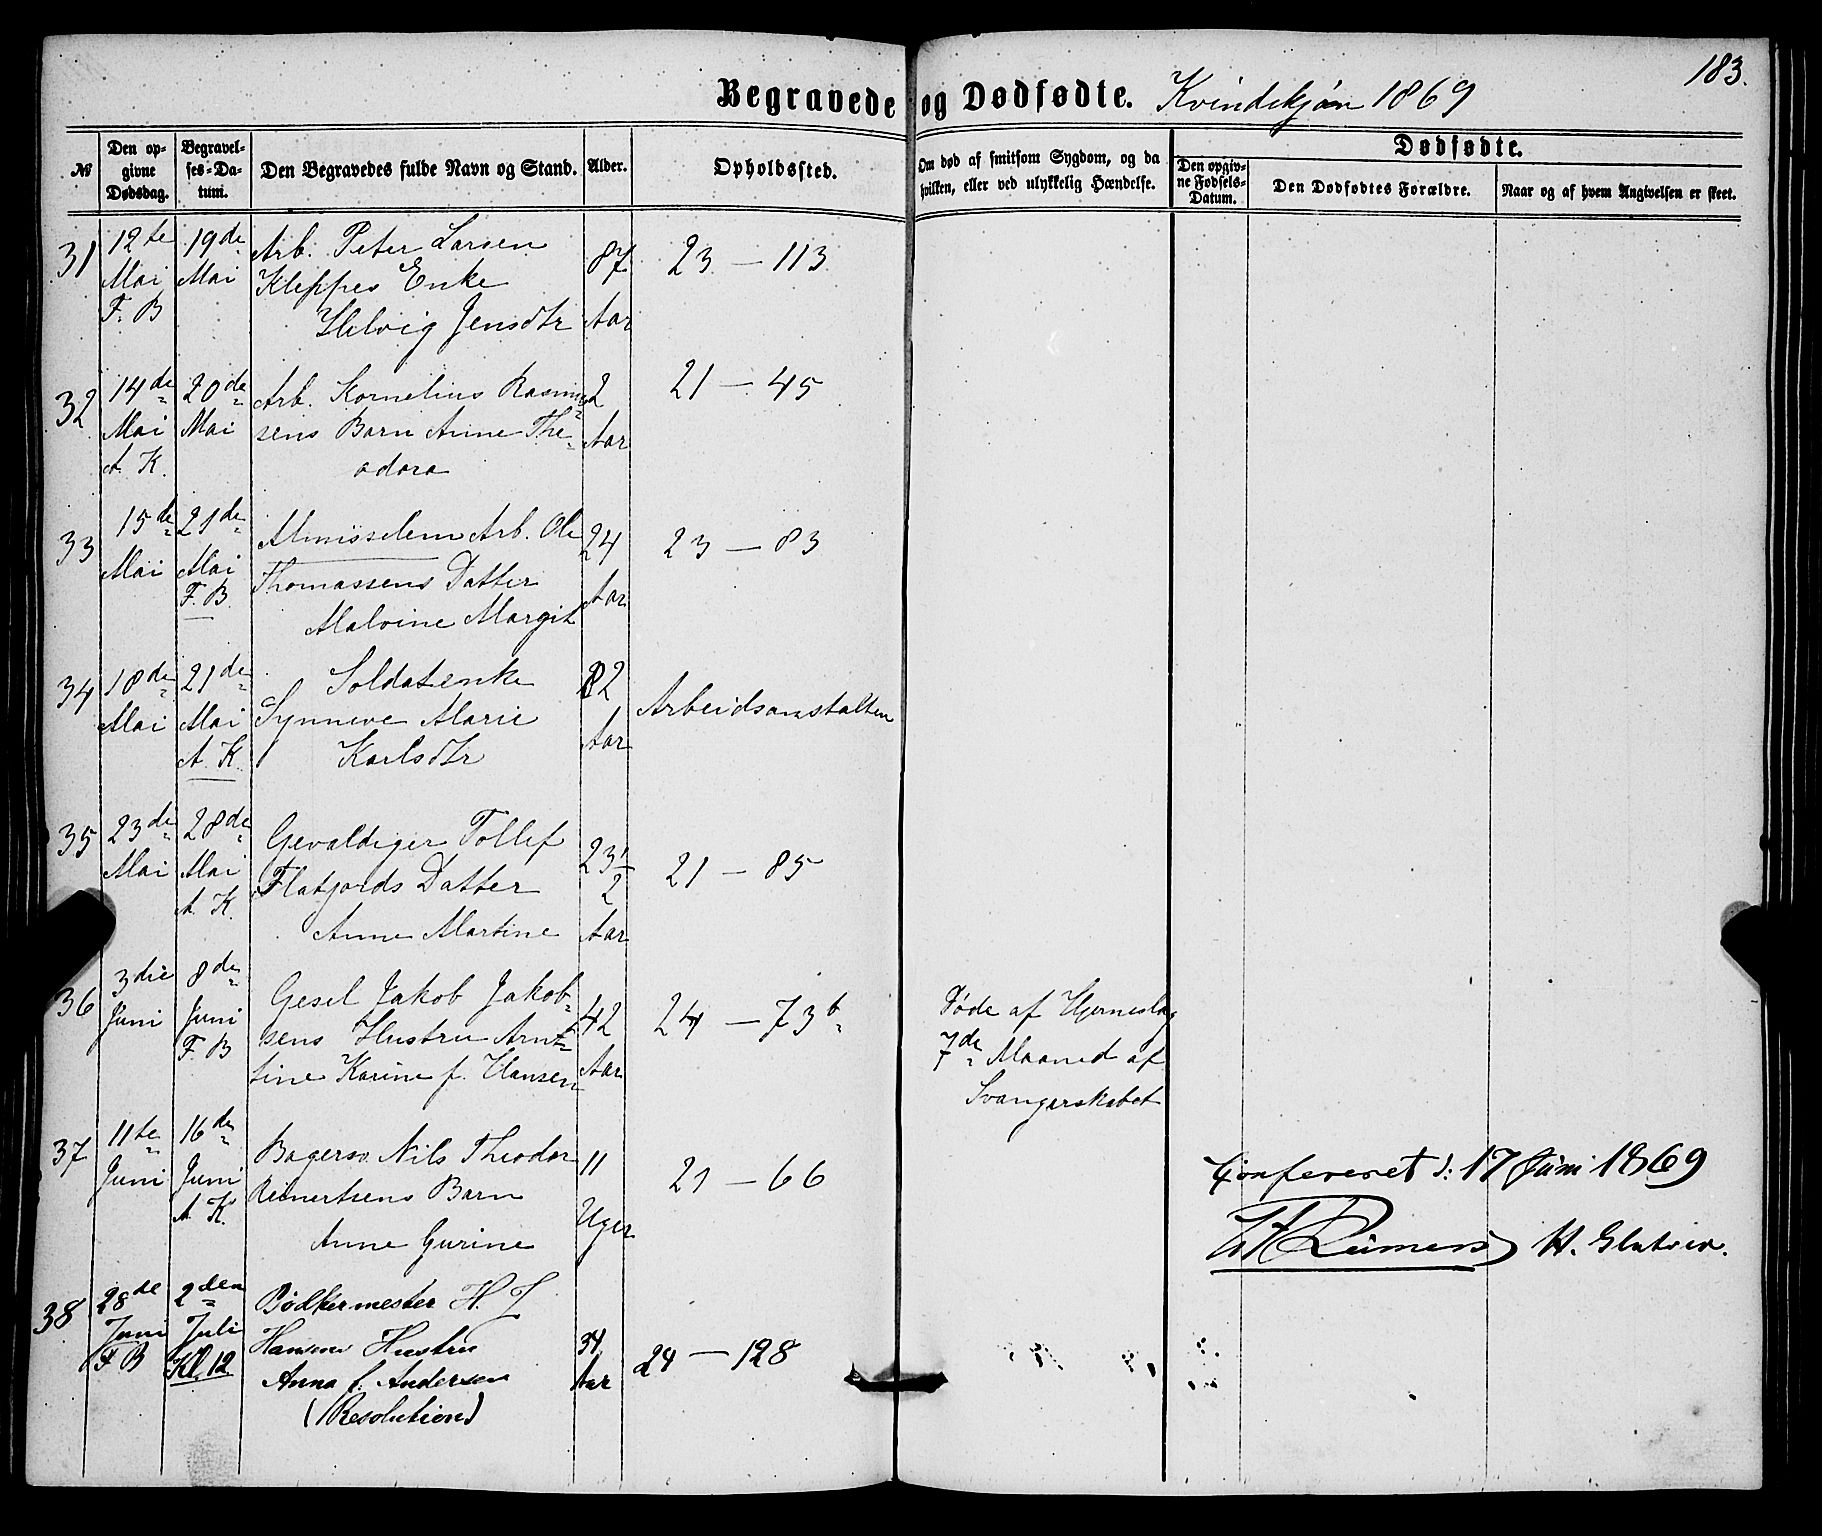 183.
Begravede og Dødfødte. Kvindekjøn 1869
№
Den opgivne Dødsdag.
Begravelses-Datum.
Den Begravedes fulde Navn og Stand.
Alder.
Opholdssted.
Om død af smitsom Sygdom, og da hvilken, eller ved ulykkelig Hændelse.
Dødfødte.
Den opgivne Fødsels-Datum.
Den Dødfødtes Forældre.
Naar og af hvem Angivelsen er skeet.
31 12te Mai F. B 19de Mai
Arb. Peter Larsen
Kleppes Enke
Helvig Jensdtr
87 Aar
23 — 113
32 14de Mai A. K. 20de Mai
Arb. Kornelius Rasmus-
sens Barn Anne The-
odora
2 Aar
21 — 45
33 15de Mai 21de Mai F. B.
Almisselem Arb. Ole
Thomassens Datter
Malvine Margit
24 Aar
23 — 83
34 18de Mai 21de Mai A. K.
Soldatenke
Synneve Marie
Karlsdtr
82 Aar
Arbeidsanstalten
35 23de Mai 28de Mai A. K.
Gevaldiger Tollef
Flatjords Datter
Anne Martine
23½ Aar
21 — 85
36 3die Juni 8de Juni F. B
Gesel Jakob Jakob-
sens Hustru Arnt-
tine Karine f. Hansen
42 Aar
24 — 73b
Døde af Hjerneslag
7de Maaned af
Svangerskabet
37 11te Juni 16de Juni A. K.
Bagersv. Nils Theodor
Reinertsens Barn
Anne Gurine
11 Uger
21 — 66
Confereret d: 17 Juni 1869
Reimers H.
38 28de Juni F B 2den Juli Kl. 12
Bødkermester H. J
Hansens Hustru
Anna f. Andersen
(Resolution)
34 Aar
24 — 128